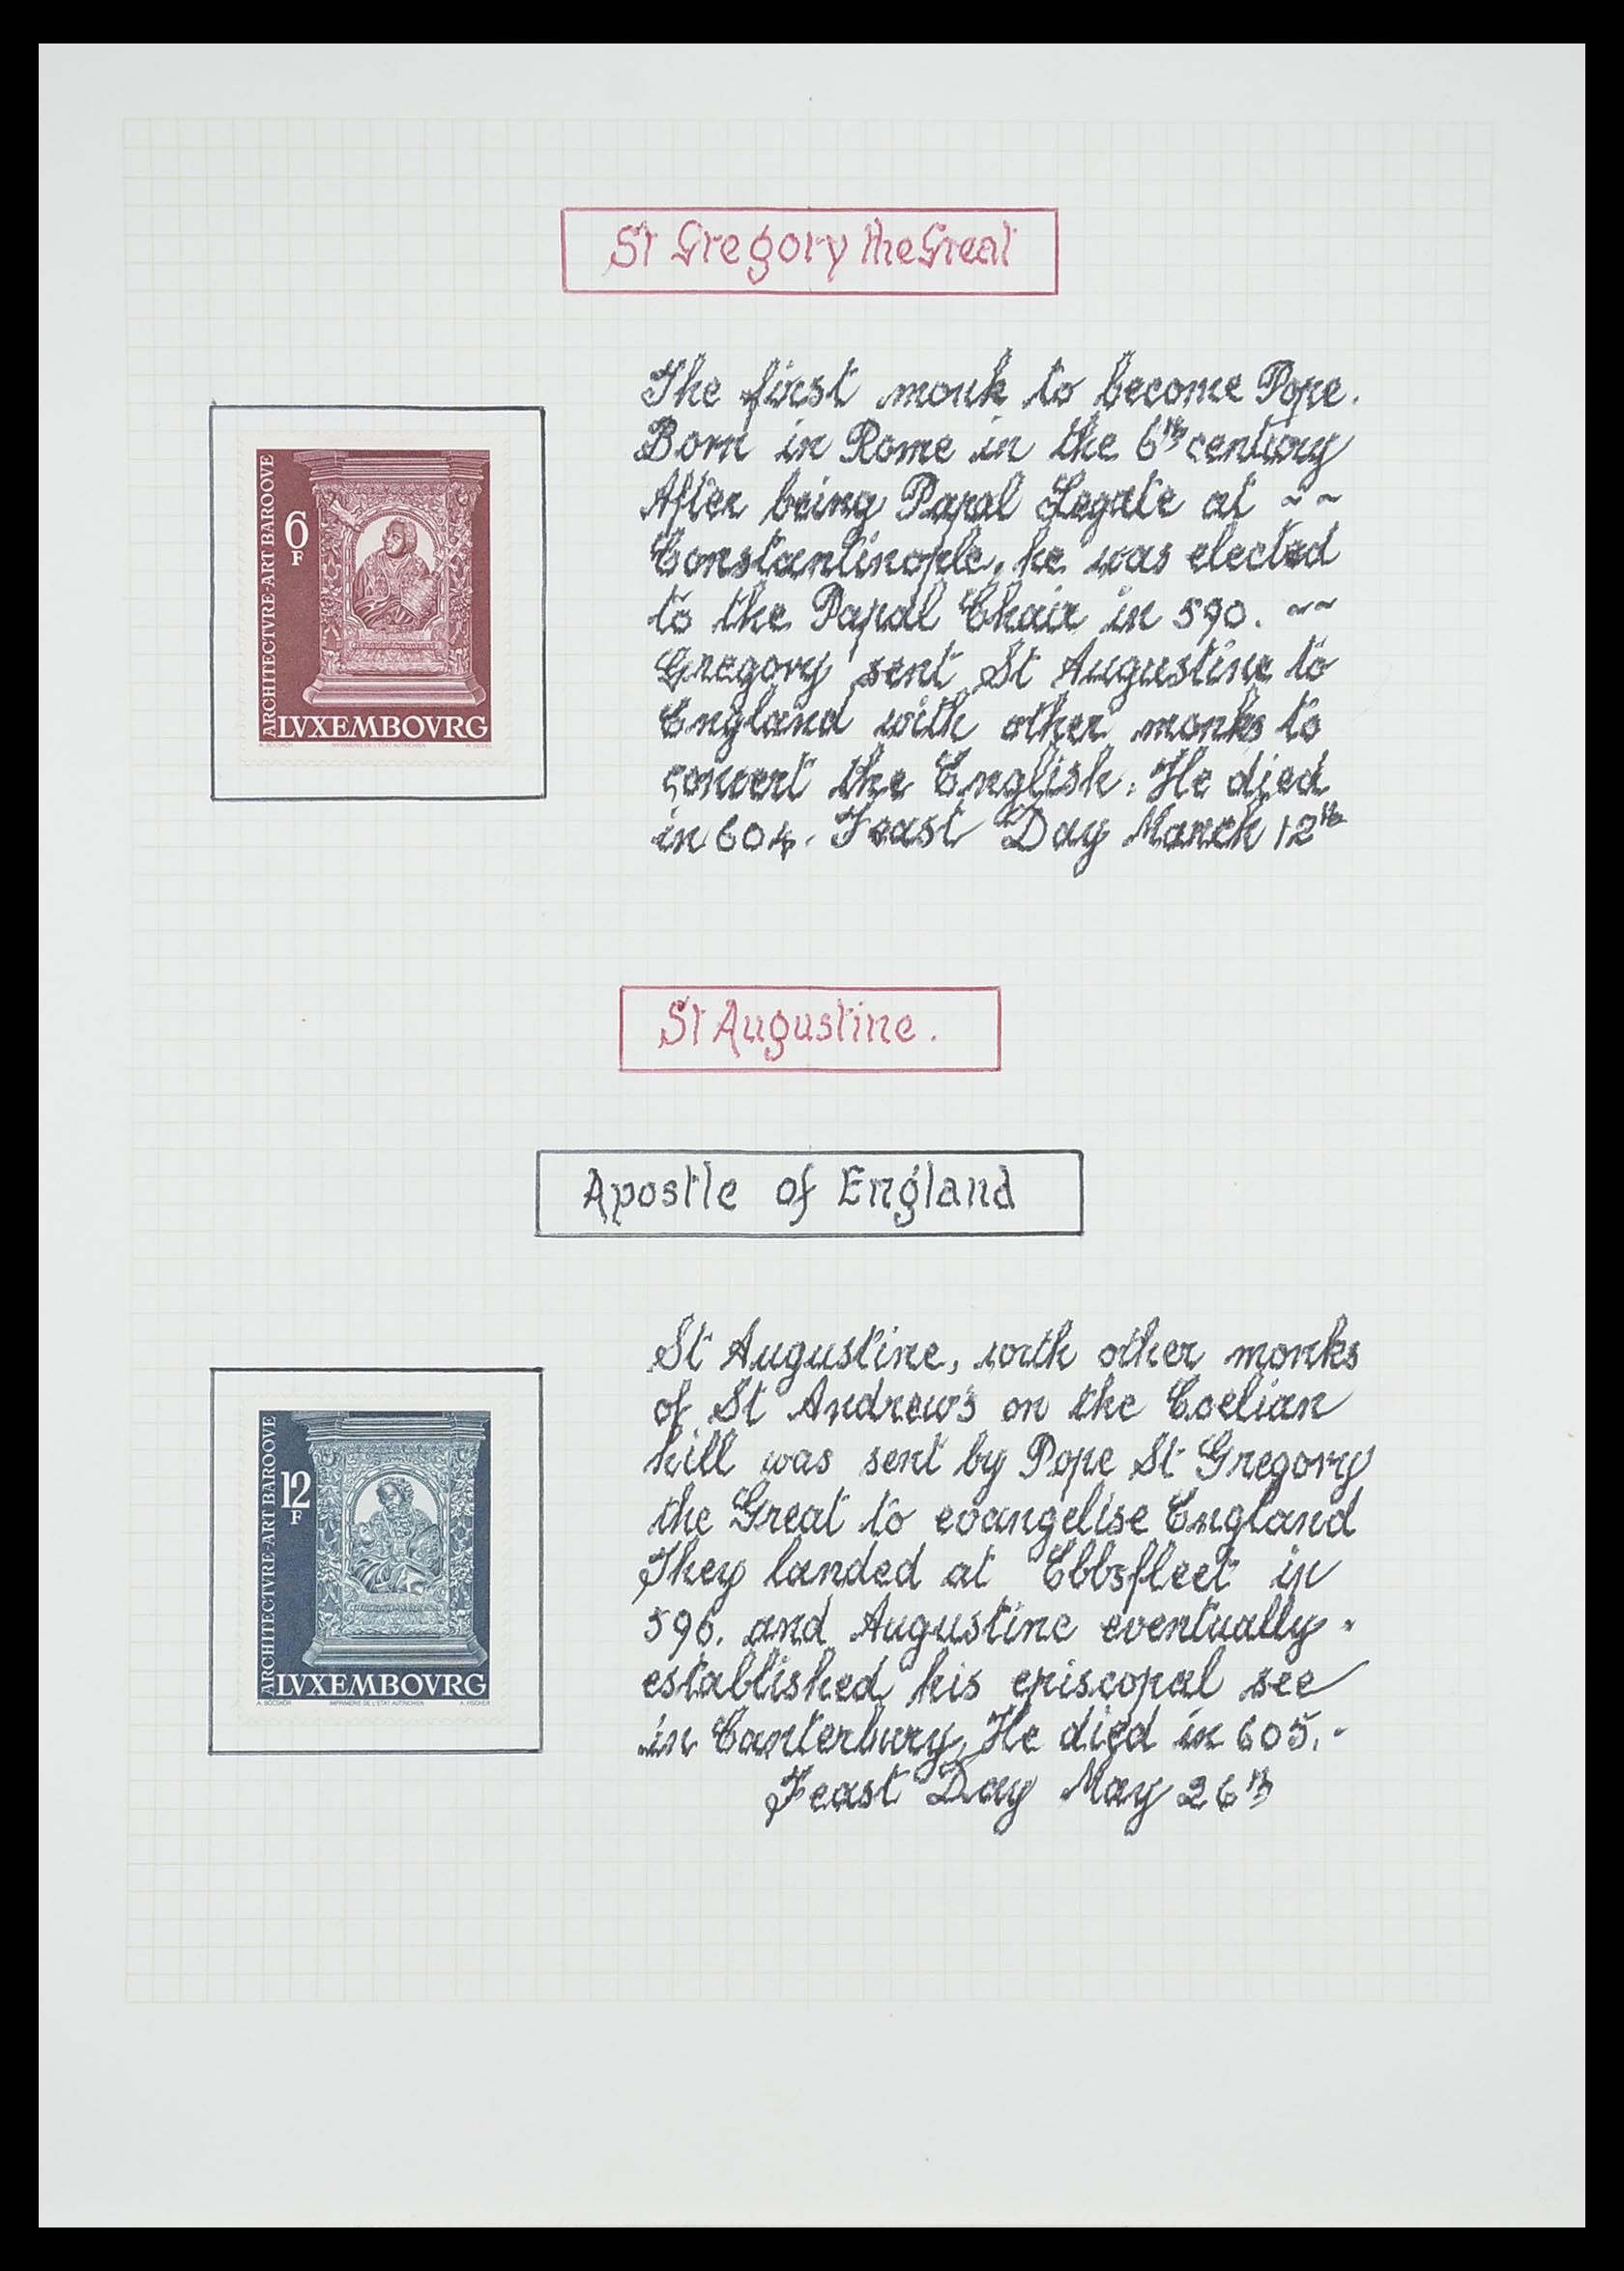 St Gregory the Great
The first monk to become Pope.
Born in Rome in the 6th century
After being Papal Legate at ~ ~
Constantinople, he was elected
to the Papal Chair in 590. ~~
Gregory sent St Augustine to
England with other monks to
convert the English. He died
in 604. Feast Day March 12th
ARCHITECTVRE-ART BAROQVE
6
F
LVXEMBOVRG
A. BÖCSKÖR IMPRIMERIE DE L'ETAT AUTRICHIEN H. SEIDEL
St Augustine.
Apostle of England
St Augustine, with other monks
of St Andrew's on the Coelian
hill was sent by Pope St Gregory
the Great to evangelise England
They landed at Ebbsfleet in
596. and Augustine eventually -
established his episcopal see
in Canterbury, He died in 605. -
Feast Day May 26th
ARCHITECTVRE-ART BAROQVE
12
F
LVXEMBOVRG
A. BÖCSKÖR IMPRIMERIE DE L'ETAT AUTRICHIEN A. FISCHER